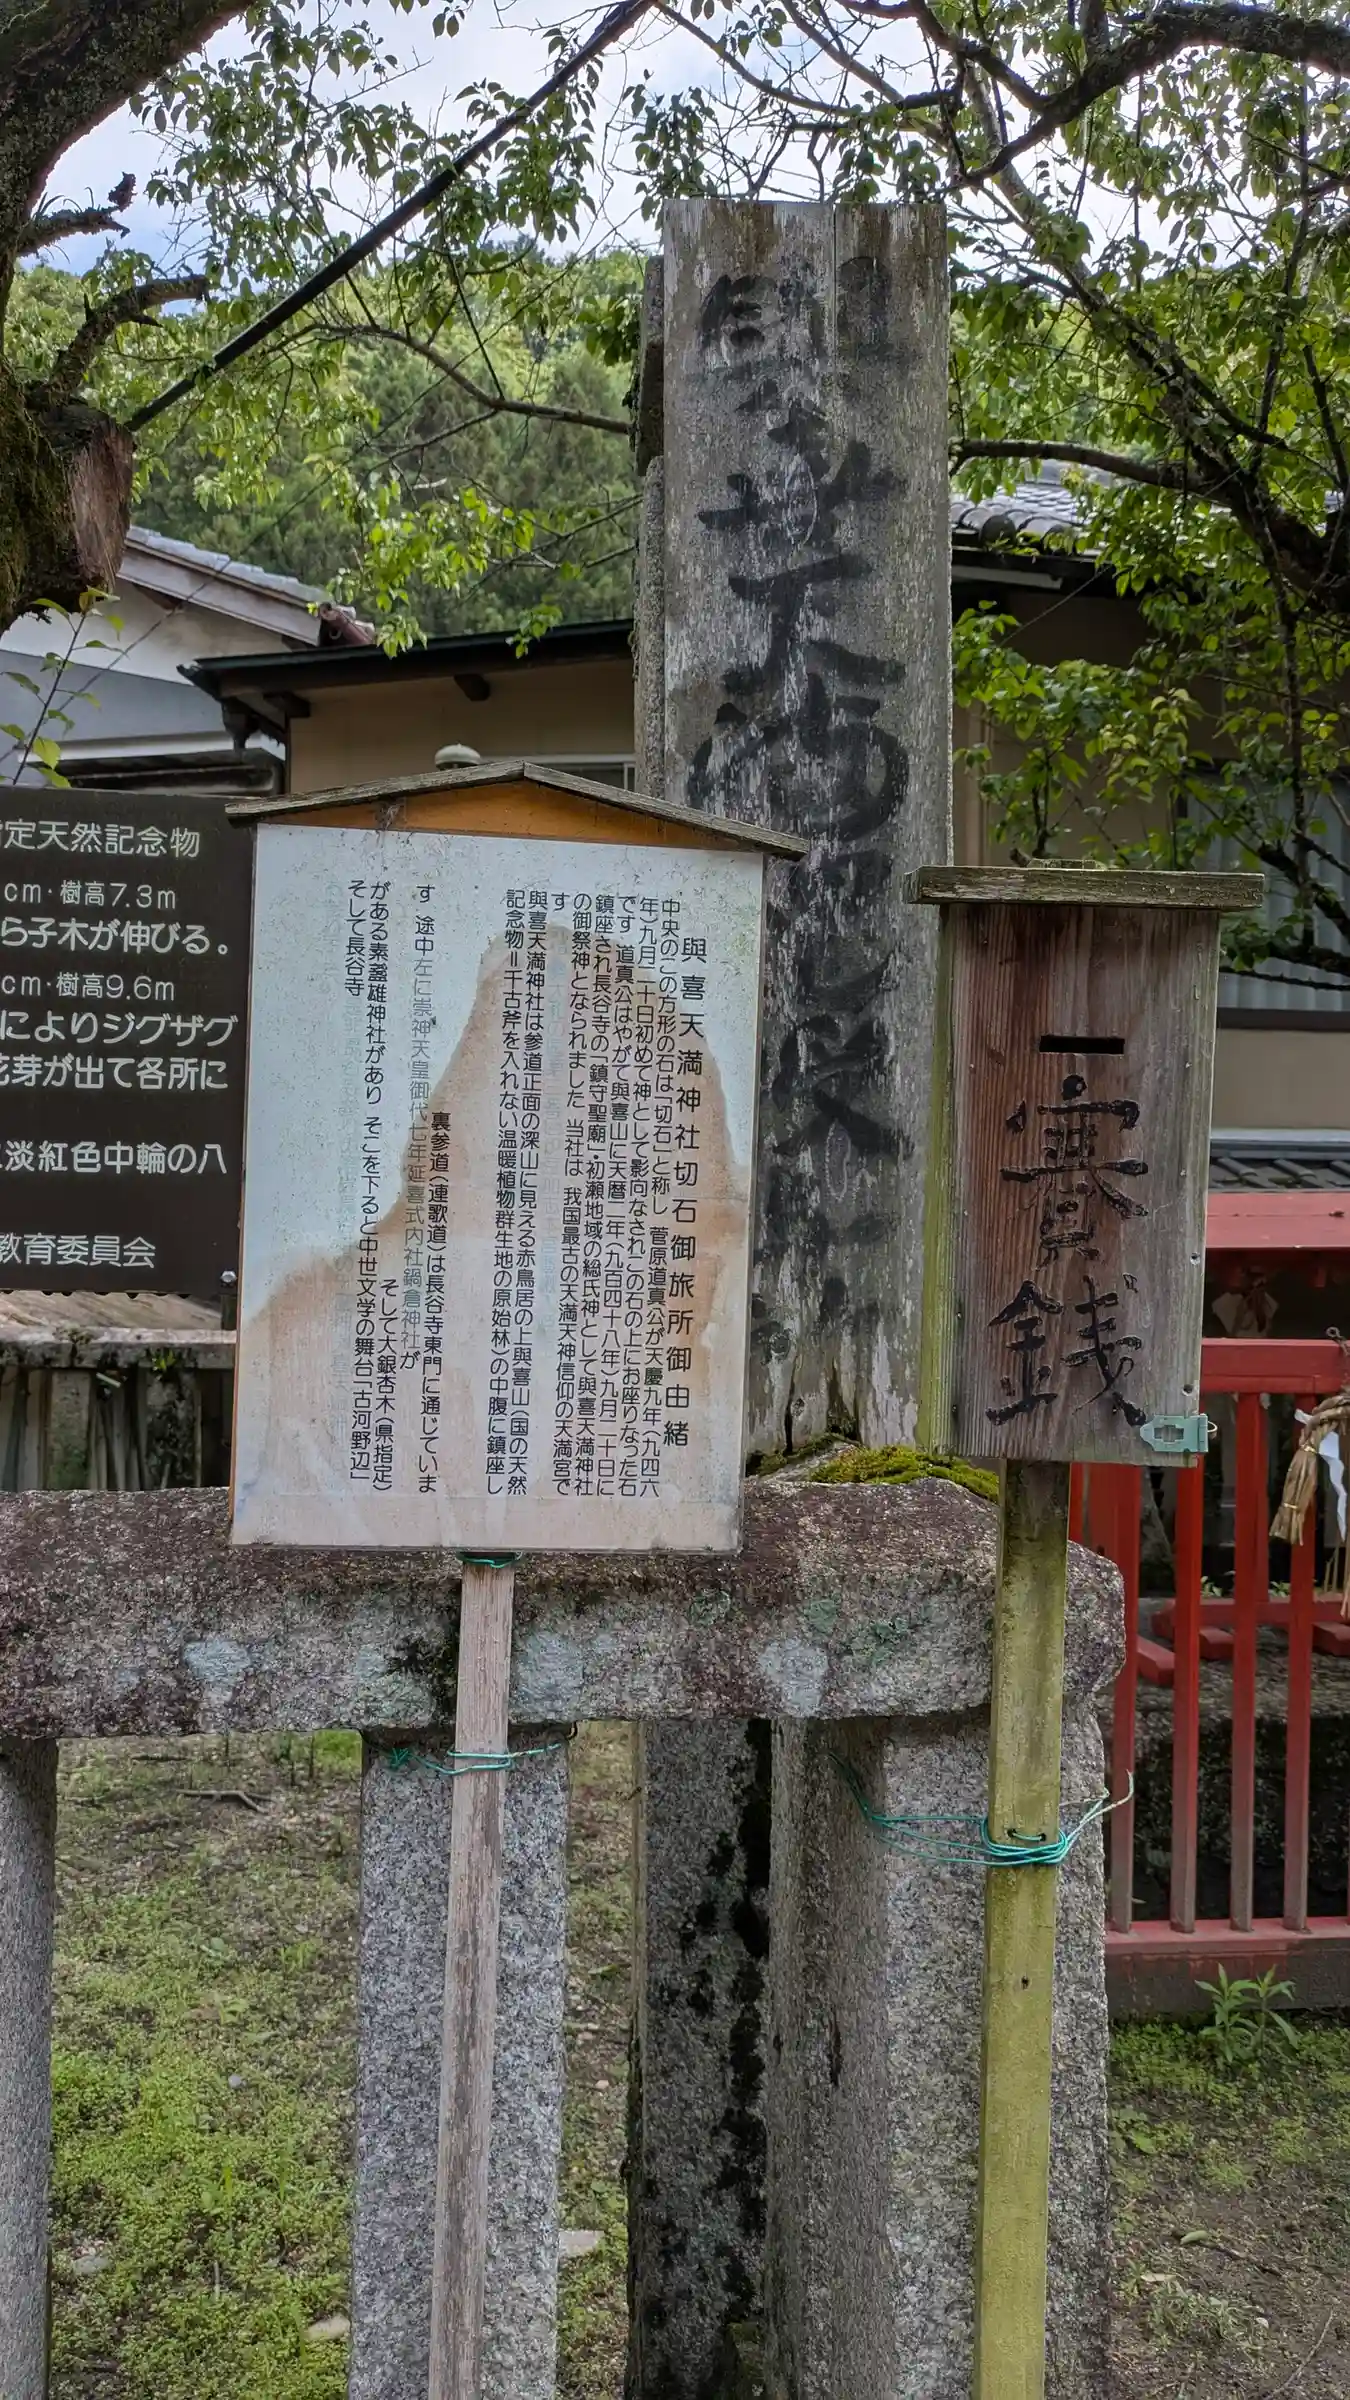 與喜天満神社切石御旅所御由緒
中央のこの方形の石は「切石」と称し 菅原道真公が天慶九年(九四六
年)九月二十日初めて神として影向なされこの石の上にお座りなった石
です 道真公はやがて與喜山に天暦二年(九百四十八年)九月二十日に
鎮座され長谷寺の「鎮守聖廟」・初瀬地域の総氏神として與喜天満神社
の御祭神となられました 当社は 我国最古の天満天神信仰の天満宮で
す
與喜天満神社は参道正面の深山に見える赤鳥居の上與喜山(国の天然
記念物=千古斧を入れない温暖植物群生地の原始林)の中腹に鎮座し
裏参道(連歌道)は長谷寺東門に通じていま
す 途中左に崇神天皇御代七年延喜式内社鍋倉神社が
そして大銀杏木(県指定)
がある素盞雄神社があり そこを下ると中世文学の舞台「古河野辺」
そして長谷寺
賽銭
指定天然記念物
cm・樹高7.3m
ら子木が伸びる。
cm・樹高9.6m
によりジグザグ
花芽が出て各所に
淡紅色中輪の八
教育委員会